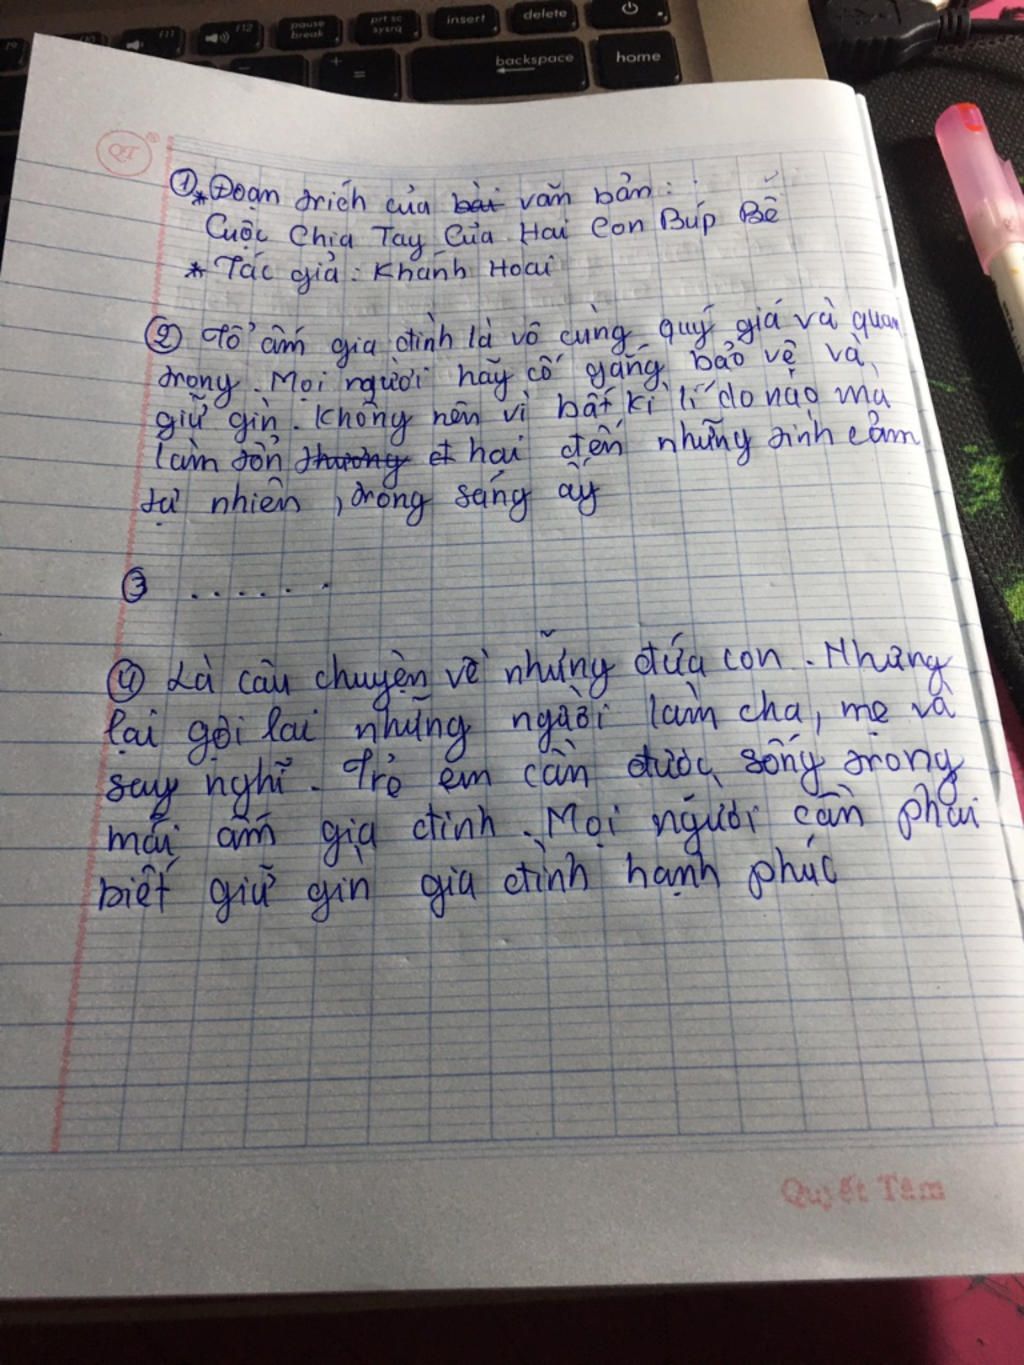 F9
F11
F12
pause
break
prt sc
sysrq
insert
delete
+
=
backspace
home
QT
① * Đoạn trích của bài văn bản:
Cuộc Chia Tay Của Hai Con Búp Bê
* Tác giả: Khánh Hoài
② Tổ ấm gia đình là vô cùng quý giá và quan
trọng. Mọi người hãy cố gắng bảo vệ và
giữ gìn. Không nên vì bất kì lí do nào mà
làm tổn thương đ hại đến những tình cảm
tự nhiên, trong sáng ấy
③ ......
④ Là câu chuyện về những đứa con. Nhưng
lại gợi lại những người làm cha, mẹ và
suy nghĩ. Trẻ em cần được sống trong
mái ấm gia đình. Mọi người cần phải
biết giữ gìn gia đình hạnh phúc
Quyết Tâm